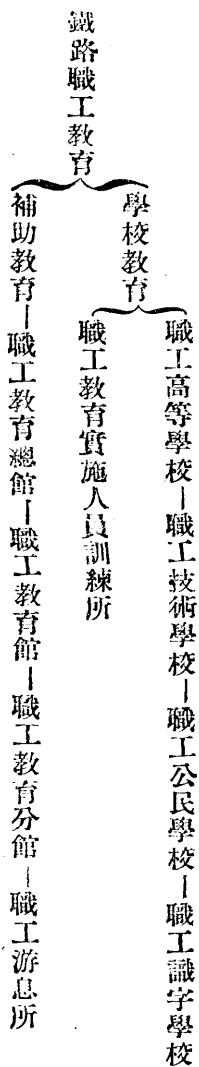 鐵路職工教育
學校教育
職工高等學校—職工技術學校—職工公民學校—職工識字學校
職工教育實施人員訓練所
補助教育—職工教育總館—職工教育館—職工教育分館—職工游息所